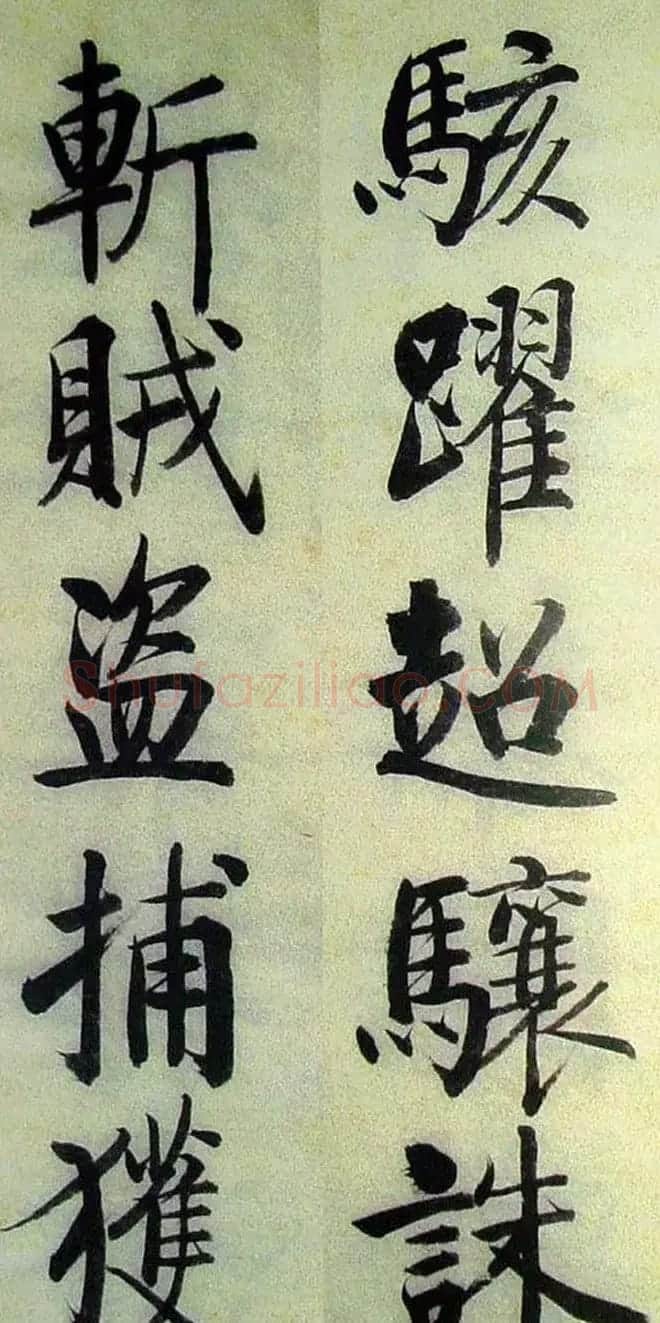 駭躍超驤誅
斬賊盜捕獲
Shufaziliao.COM